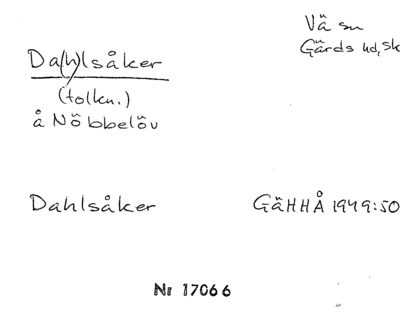 Vä sn
Gärds hd, Sk
Da(h)lsåker
(tolkn.)
å Nöbbelöv
Dahlsåker
GäHHÅ 1949:50
Nr 17066